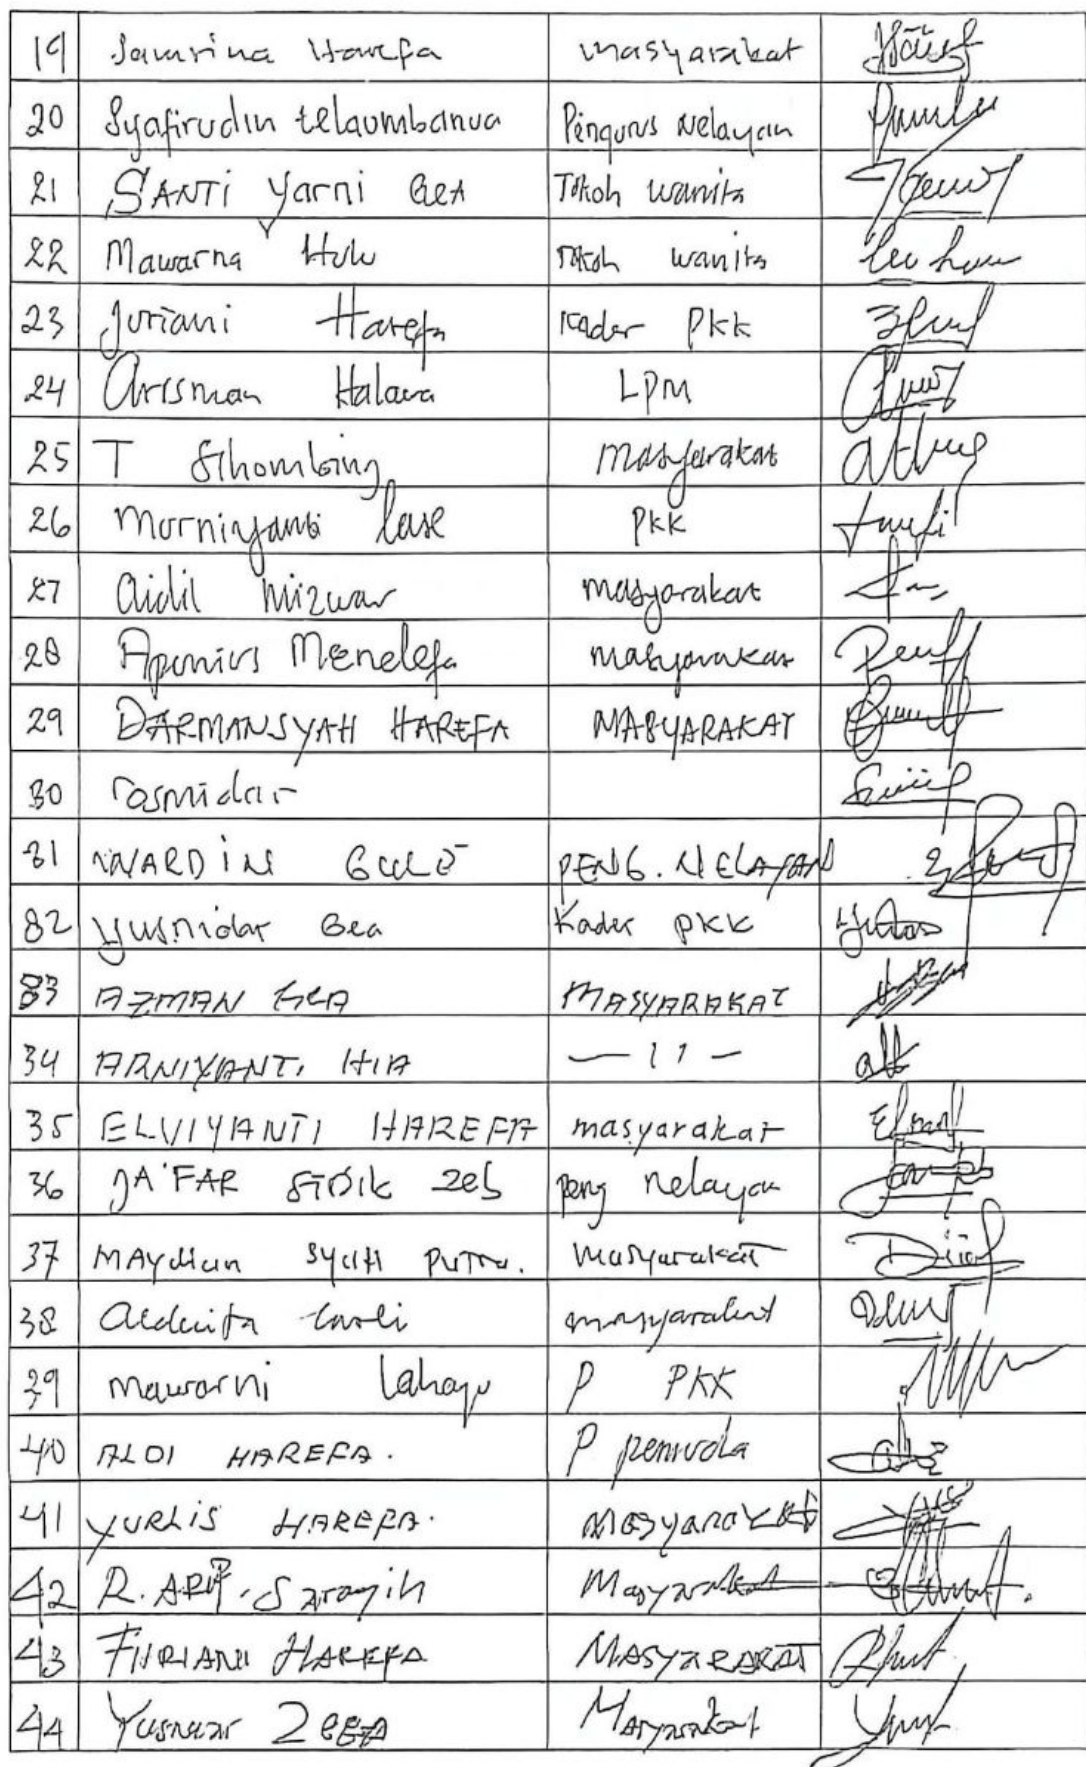 19 Samrina Harefa masyarakat
20 Syafirudin telaumbanua Pengurus Nelayan
21 SANTI Yarni GEA Tokoh wanita
22 Mawarna Hulu Tokoh wanita
23 Juriani Harefa Kader PKK
24 Arisman Halawa LPM
25 T Sihombing masyarakat
26 Murniyanti Lase PKK
27 Aidil Mizwar masyarakat
28 Aponius Menelefa masyarakat
29 DARMANSYAH HAREFA MASYARAKAT
30 rasmidar
31 WARDIN GULO PENG. NELAYAN
32 yusnidar Gea Kader PKK
33 AZMAN GEA MASYARAKAT
34 ARNIYANTI HIA — 11 —
35 ELVIYANTI HAREFA masyarakat
36 JA'FAR SIDIK Zeb peng nelayan
37 MAYdian SyaH Putra. masyarakat
38 masyarakat
39 mawarni Lahagu P PKK
40 ALDI HAREFA. P pemuda
41 YURLIS HAREFA. Masyarakat
42 R. ARIF. Saragih Masyarakat
43 FITRIANI HAREFA MASYARAKAT
44 Yusnuar Zega Masyarakat